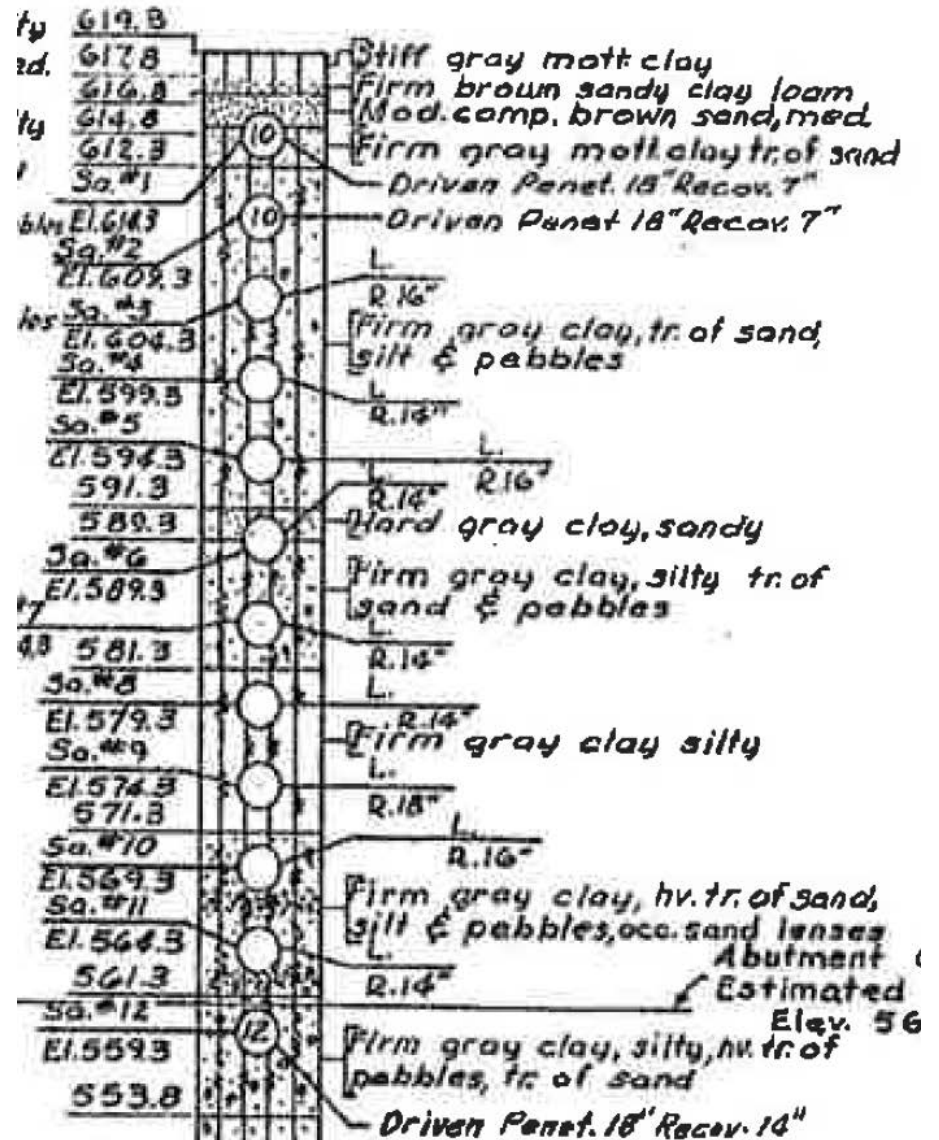 ty 619.3
ed. 617.8
616.8
ty 614.8
612.3
Sa. #1
El. 614.3
Sa. #2
El. 609.3
Sa. #3
El. 604.3
Sa. #4
El. 599.3
Sa. #5
El. 594.3
591.3
589.3
Sa. #6
El. 589.3
581.3
Sa. #8
El. 579.3
Sa. #9
El. 574.3
571.3
Sa. #10
El. 569.3
Sa. #11
El. 564.3
561.3
Sa. #12
El. 559.3
553.8
10
10
12
Stiff gray mott. clay
Firm brown sandy clay loam
Mod. comp. brown sand, med.
Firm gray mott. clay tr. of sand
Driven Penet. 18" Recov. 7"
Driven Penet 18" Recov. 7"
L.
R.16"
Firm gray clay, tr. of sand,
silt & pebbles
L.
R.14"
L.
R.16"
L.
R.14"
Hard gray clay, sandy
Firm gray clay, silty tr. of
sand & pebbles
L.
R.14"
L.
R.14"
Firm gray clay silty
L.
R.18"
L.
R.16"
Firm gray clay, hv. tr. of sand,
silt & pebbles, occ. sand lenses
L.
R.14"
Abutment
Estimated
Elev. 56
Firm gray clay, silty, hv. tr. of
pebbles, tr. of sand
Driven Penet. 18" Recov. 14"